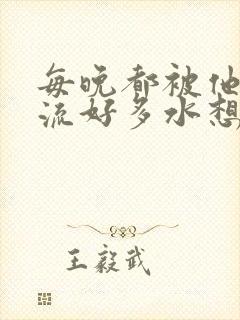 每晚都被他
流好多水想
王毅武